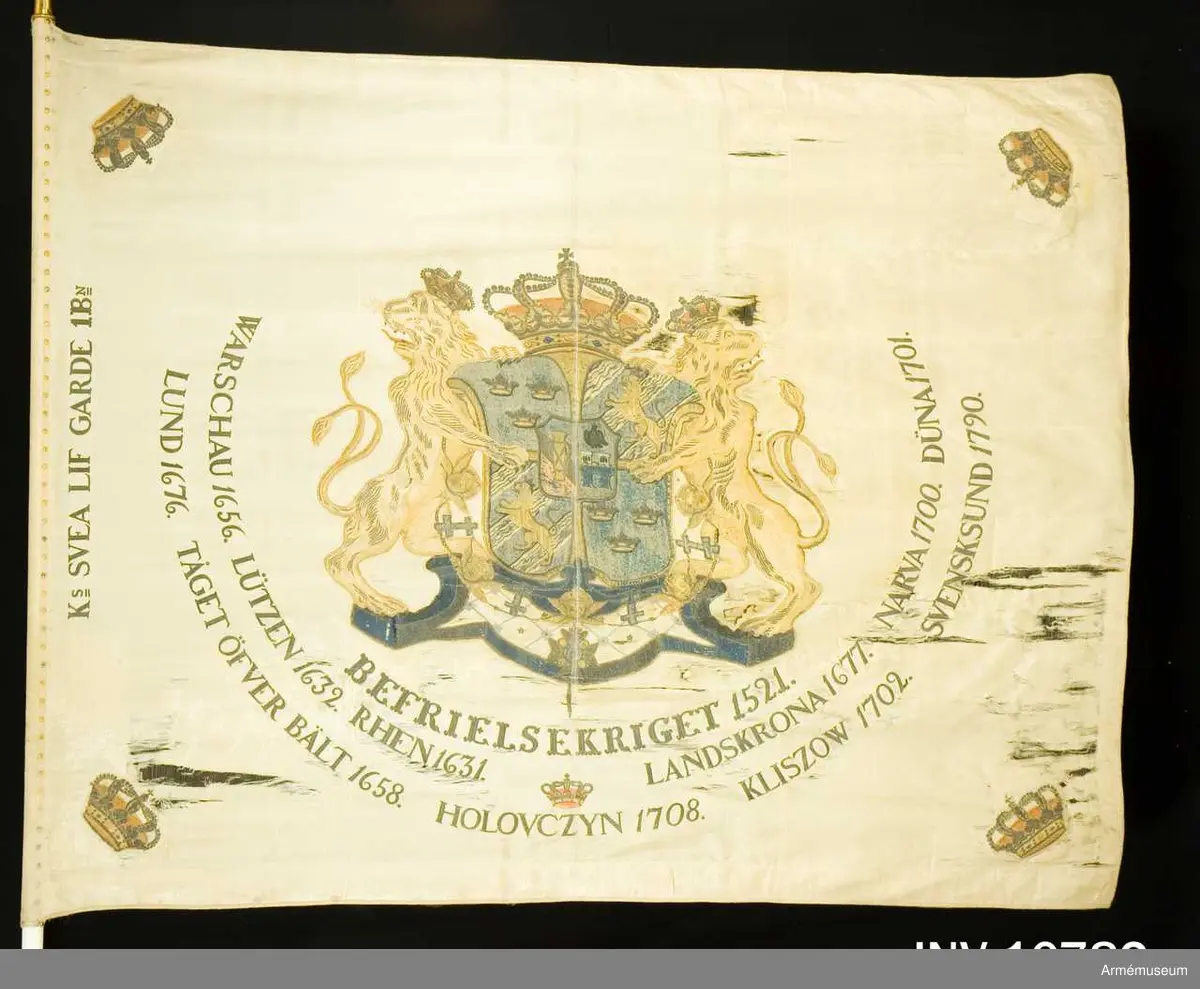 Ks SVEA LIF GARDE 1BN
BEFRIELSEKRIGET 1521.
WARSCHAU 1656. LÜTZEN 1632. RHEN 1631.
LANDSKRONA 1677. NARVA 1700. DÜNA 1701.
LUND 1676. TÅGET ÖFVER BÄLT 1658.
HOLOVCZYN 1708.
KLISZOW 1702. SVENSKSUND 1790.
Armémuseum